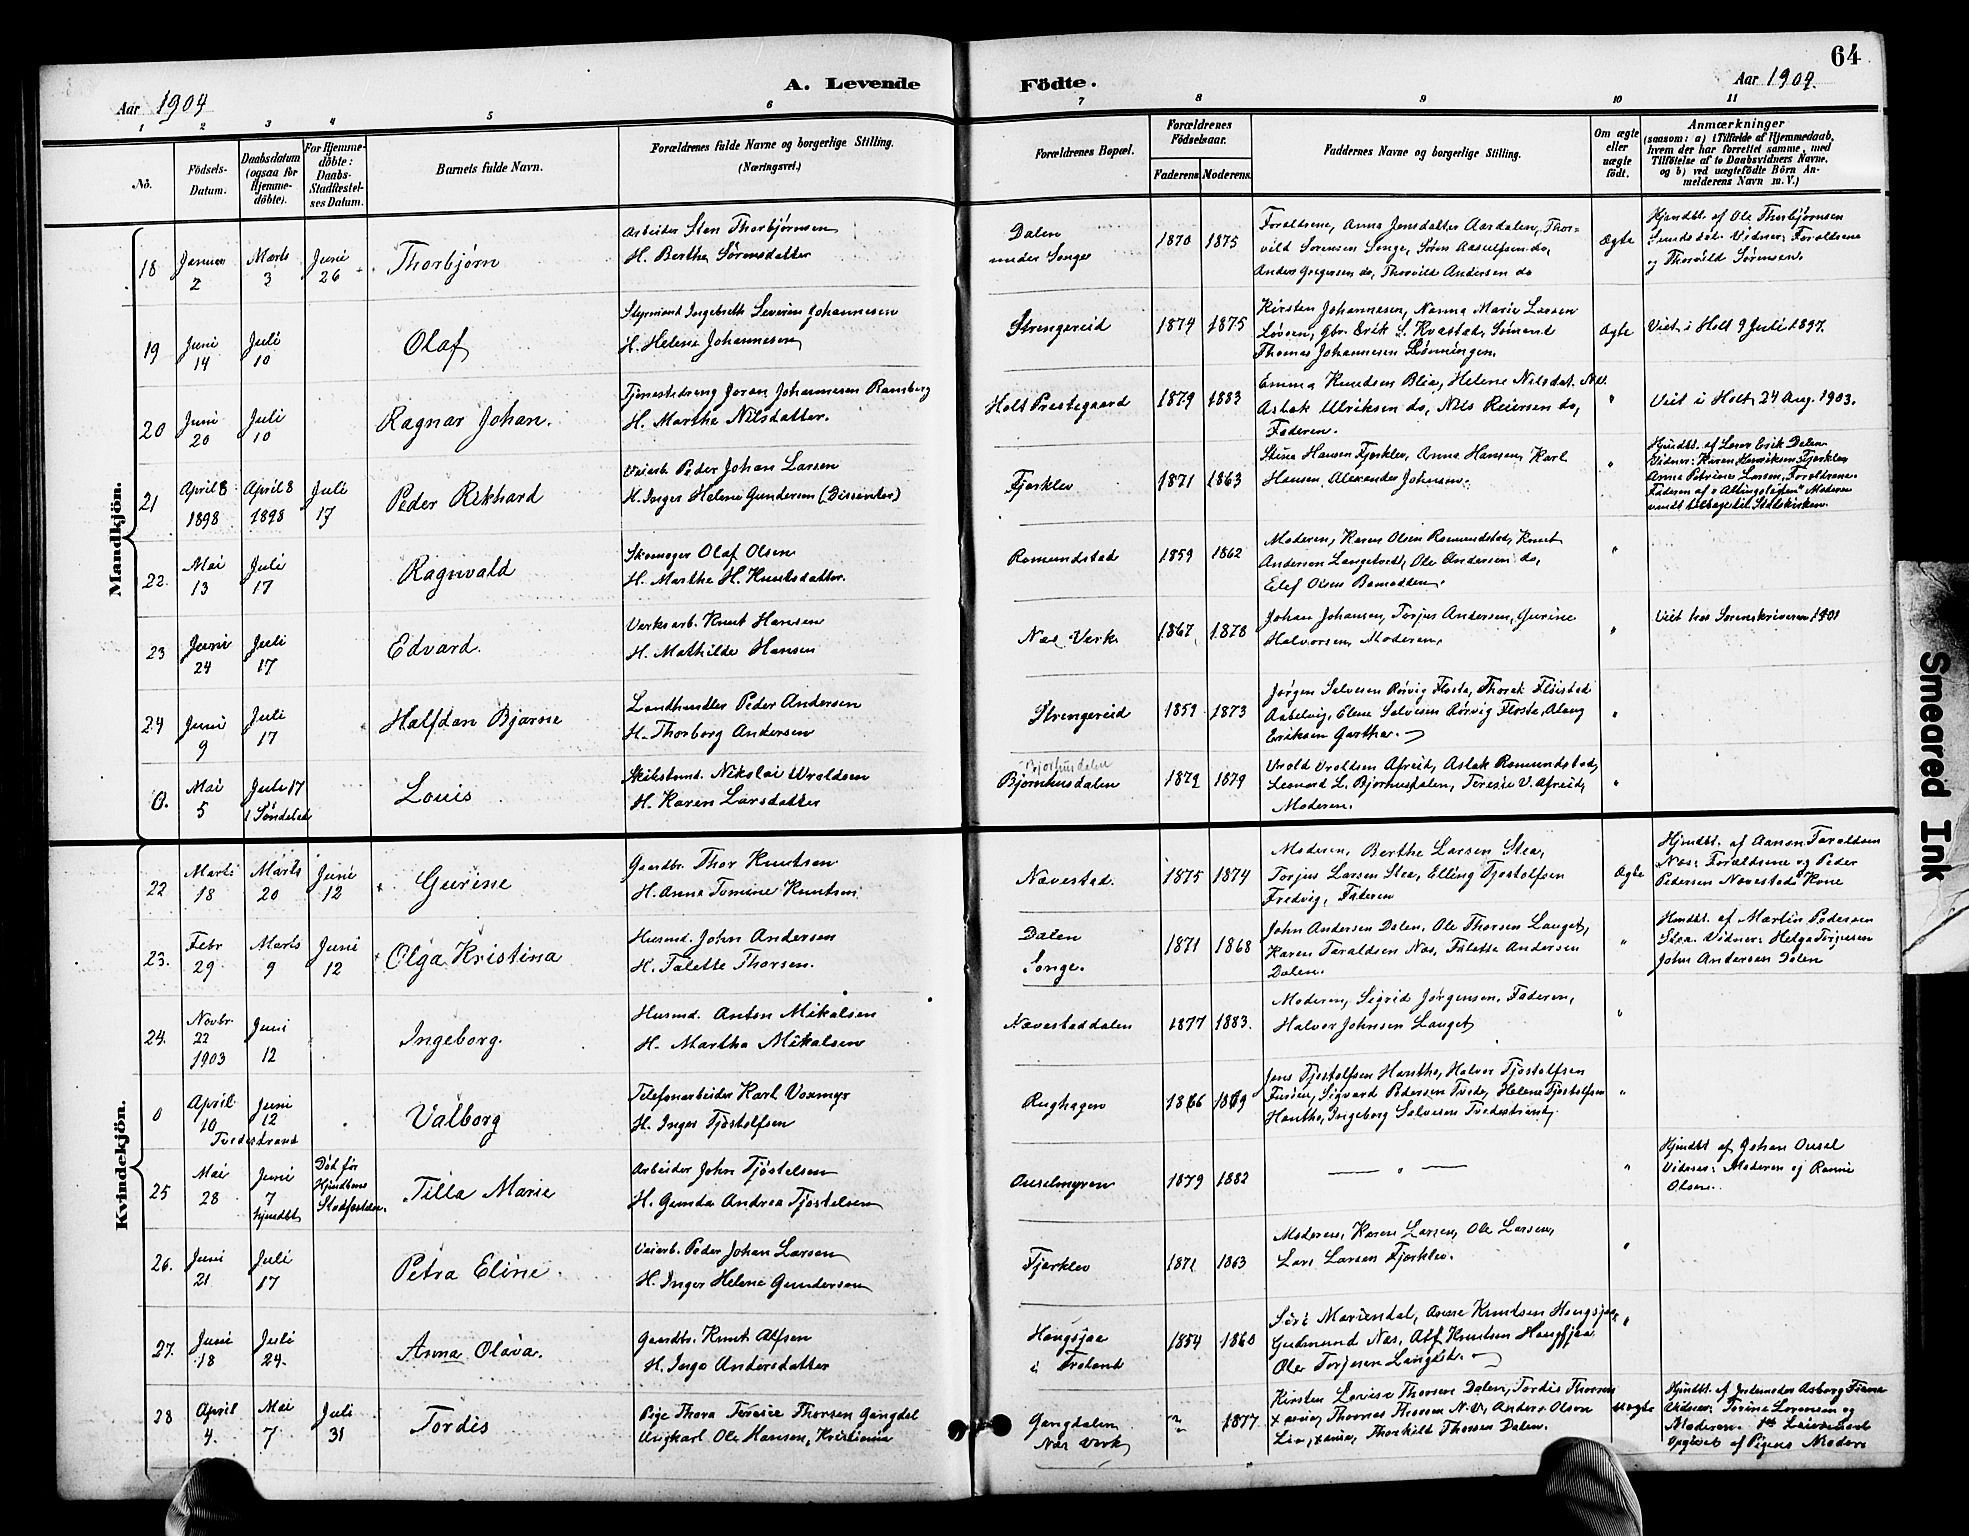 64
Aar 1904
A. Levende
Födte.
Aar 1904.
1 2 3 4 5 6 7 8 9 10 11
No.
Födsels-
Datum.
Daabsdatum
(ogsaa för
Hjemme-
döbte).
For Hjemme-
döbte:
Daabs-
Stadfæstel-
ses Datum.
Barnets fulde Navn.
Forældrenes fulde Navne og borgerlige Stilling.
(Næringsvei.)
Forældrenes Bopæl.
Forældrenes
Födselsaar.
Faderens. Moderens.
Faddernes Navne og borgerlige Stilling.
Om ægte
eller
uægte
födt.
Anmærkninger
(saasom: a) i Tilfælde af Hjemmedaab,
hvem der har forrettet samme, med
Tilföielse af to Daabsvidners Navne,
og b) ved uægtefödte Börn An-
melderens Navn m. V.)
Mandkjön.
18
Januar
2
Marts
3
Juni
26
Thorbjørn
Arbeider Sten Thorbjørnsen
H. Berthe Sørensdatter
Dalen
under Songe
1870 1875
Forældrene, Anna Jensdatter Aasdalen, Thor-
vild Sørensen Songe, Søren Aasulfsen do,
Anders Gregersen do, Thorvild Andersen do
Ægte
Hjmdbt. af Ole Thorbjørnsen
Sundsdal. Vidner: Forældrene
og Thorvild Sørensen.
19
Juni
14
Juli
10
Olaf
Styrmand Ingebreth Severin Johannesen
H. Helene Johannesen
Strengereid
1874 1875
Kirsten Johannesen, Nanna Marie Larsen
Løvsen, Gbr. Erik S. Kvastad, Sømand
Thomas Johannesen Lønningen.
Ægte
Viet i Holt 9 Juli 1897.
20
Juni
20
Juli
10
Ragnar Johan.
Tjenestedreng Joran Johannesen Ramberg
H. Marthe Nilsdatter.
Holt Prestegaard
1879 1883
Emma Knudsen Blia, Helene Nilsdat.
Aslak Ulriksen do, Nils Reiersen do,
Faderen.
"
Viet i Holt 24 Aug. 1903.
21
April 8
1898
April 8
1898
Juli
17
Peder Rikhard
Veiarb. Peder Johan Larsen
H. Inger Helene Gundersen (Dissenter)
Fjærklev
1871 1863
Stina Hansen Fjærklev, Anna Hansen, Karl
Hansen, Alexander Johnsen.
"
Hjmdbt. af Lærer Erik Dalen
Vidner: Karen Henriksen Fjærklev
Anne Petrine Larsen, Forældrene.
Faderen af Moderen
vendt tilbage til Statskirken.
22.
Mai
13
Juli
17
Ragnvald
Skomager Olaf Olsen
H. Marthe H. Knutsdatter.
Romundstad
1859 1862
Moderen, Karen Olsen Romundstad, Knut
Andersen Langetveit, Ole Andersen do,
Elef Olsen
"
23
Juni
24
Juli
17
Edvard.
Verksarb. Knut Hansen
H. Mathilde Hansen
Næs Verk
1867 1878
Johan Johansen, Torjus Andersen, Gurine
Halvorsen, Moderen.
"
Viet hos Sorenskriveren 1901
24
Juni
9
Juli
17
Halfdan Bjarne
Landhandler Peder Andersen
H. Thorborg Andersen
Strengereid
1859 1873
Jørgen Salvesen Rørvig Flosta, Thorek Fløistad
Aabelvig, Elene Salvesen Rørvig Flosta, Alaug
Eriksen Gartha.
"
0.
Mai
5
Juli 17
i Søndeled
Louis
Skibstmd. Nikolai Uroldsen
H. Karen Larsdatter
Bjorhusdalen
Bjørnhusdalen
1872 1879
Urold Uroldsen Afreid, Aslak Romundstad,
Leonard L. Bjorhusdalen, Teresie V. Afreid,
Moderen.
"
Kvindekjön.
22
Marts
18
Marts
20
Juni
12
Gurine
Gaardbr. Thor Knutsen
H. Anna Tomine Knutsen
Nævestad.
1875 1874
Moderen, Berthe Larsen Stea,
Torjus Larsen Stea, Elling Tjostolfsen
Fredvig, Faderen
Ægte
Hjmdbt. af Aanon Taraldsen
Næs: Forældrene og Peder
Pedersen Nævestads Kone
23.
Febr
29
Marts
9
Juni
12
Olga Kristina
Husmd. John Andersen
H. Talette Thorsen.
Dalen
Songe.
1871 1868
John Andersen Dalen, Ole Thorsen Lauget,
Karen Taraldsen Næs, Talette Andersen
Dalen.
"
Hmdbt. af Martin Pedersen
Stea. Vidner: Helga Torjusen
John Andersen Dalen
24.
Novbr.
22
1903
Juni
12
Ingeborg.
Husmd. Anton Mikalsen
H. Martha Mikalsen
Nævestaddalen
1877 1883.
Moderen, Sigrid Jørgensen, Faderen,
Halvor Johnsen Lauget
"
0
April
10
Tvedestrand
Juni
12
Valborg
Telefonarbeider Karl Voxmyr
H. Inger Tjostolfsen
Rughagen
1866 1869
Jens Tjostolfsen Hanthe, Halvor Tjostolfsen
Fursen, Sigvard Pedersen Tvede, Helene Tjostolfsen
Hanthe, Ingeborg Salvesen Tvedestrand,
"
25
Mai
28
Juni
7
hjmdbt
Død før
Hjmdbens
Stadfæstelse.
Tilla Marie
Arbeider John Tjøstelsen
H. Gunda Andrea Tjøstelsen
Ouselmyren
1879 1882
— " —
"
Hjmdbt. af Johan Ousel
Vidner: Moderen og Ranni
Olsen.
26.
Juni
21
Juli
17
Petra Eline.
Veiarb. Peder Johan Larsen
H. Inger Helene Gundersen
Fjærklev
1871 1863
Moderen, Karen Larsen, Ole Larsen,
Lars Larsen Fjærklev.
"
27.
Juni
18
Juli
24.
Anna Olava.
Gaardbr. Knut Alfsen
H. Inga Andersdatter
Haugsjaa
i Froland
1854 1860
Siri Mariendal, Anne Knudsen Haugsjaa,
Gudmund Næs, Alf Knutsen Haugsjaa
Ole Torjusen
"
28
April
4.
Mai
7
Juli
31
Tordis
Pige Thora Teresie Thorsen Gangdal
Ungkarl Ole Hansen, Kristiania
Gangdalen
Næs Verk
1877
Kirsten Lovise Thorsen Dalen, Tordis Thorsen
Thomas Thorsen N.V. Anders Olsen
Lia, Thorkild Thorsen Dalen.
uægte
Hjmdbt. af Jordemoder Aasborg
Vidner: Torine Sørensen og
Moderen.
Opgivet af Pigens Moder
Smeared Ink